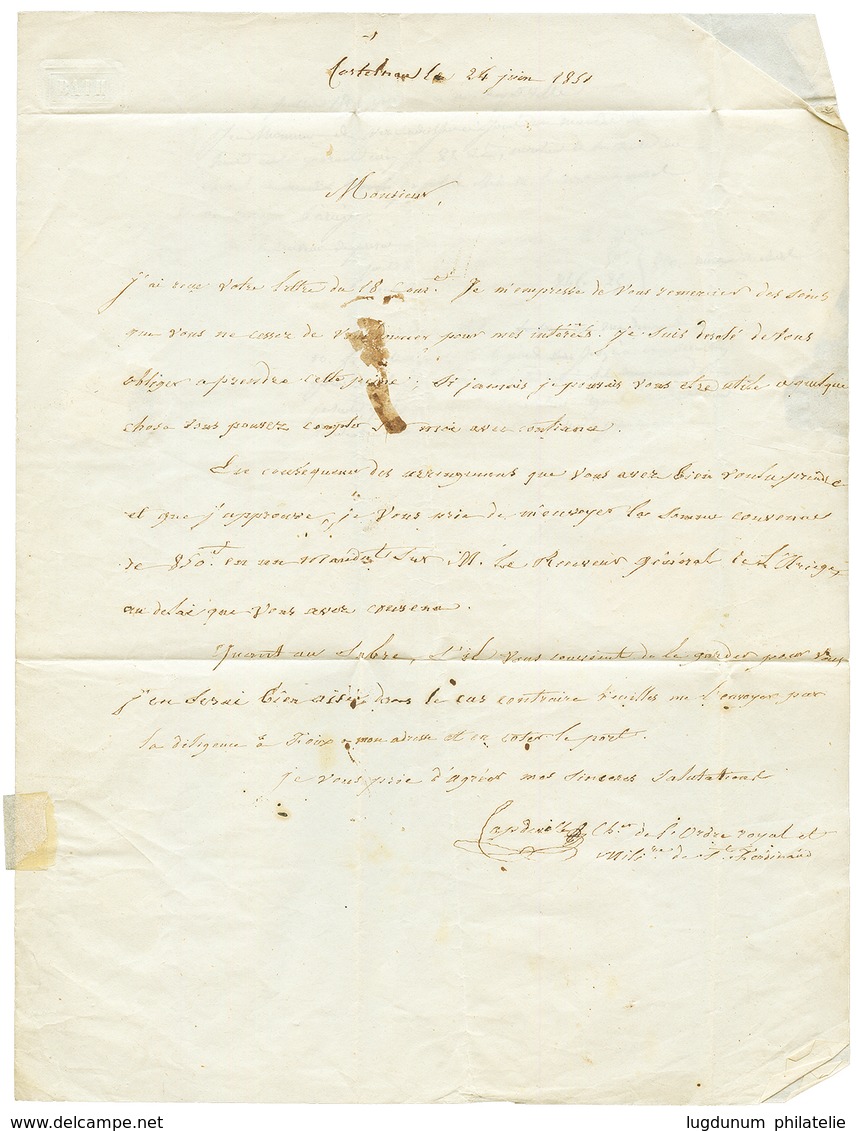 BATH
Castelnau le 24 juin 1851
Monsieur,
J'ai reçu votre lettre du 18 cour.t Je m'empresse de vous remercier des soins
que vous ne cessez de vous donner pour mes interêts. je suis desolé de vous
obliger a prendre cette peine ; Si jamais je pouvais vous etre utile a quelque
chose vous pouvez compter sur moi avec confiance.
En consequence des arrangemens que vous avez bien voulu prendre
et que j'approuve, je vous prie de m'envoyer la somme convenue
de 850.f en un Mandat sur M. le Receveur général de l'Ariège,
au delai que vous avez convenu.
Quant au Sabre, s'il vous convient de le garder pour vous
j'en serai bien aise, dans le cas contraire veuilles me l'envoyer par
la diligence à Foix a mon adresse et en coter le port.
je vous prie d'agréer mes sinceres salutations
Capdeville Ch.er de l'Ordre royal et
Milit.re de St. Ferdinand
www.delcampe.net
lugdunum philatelie